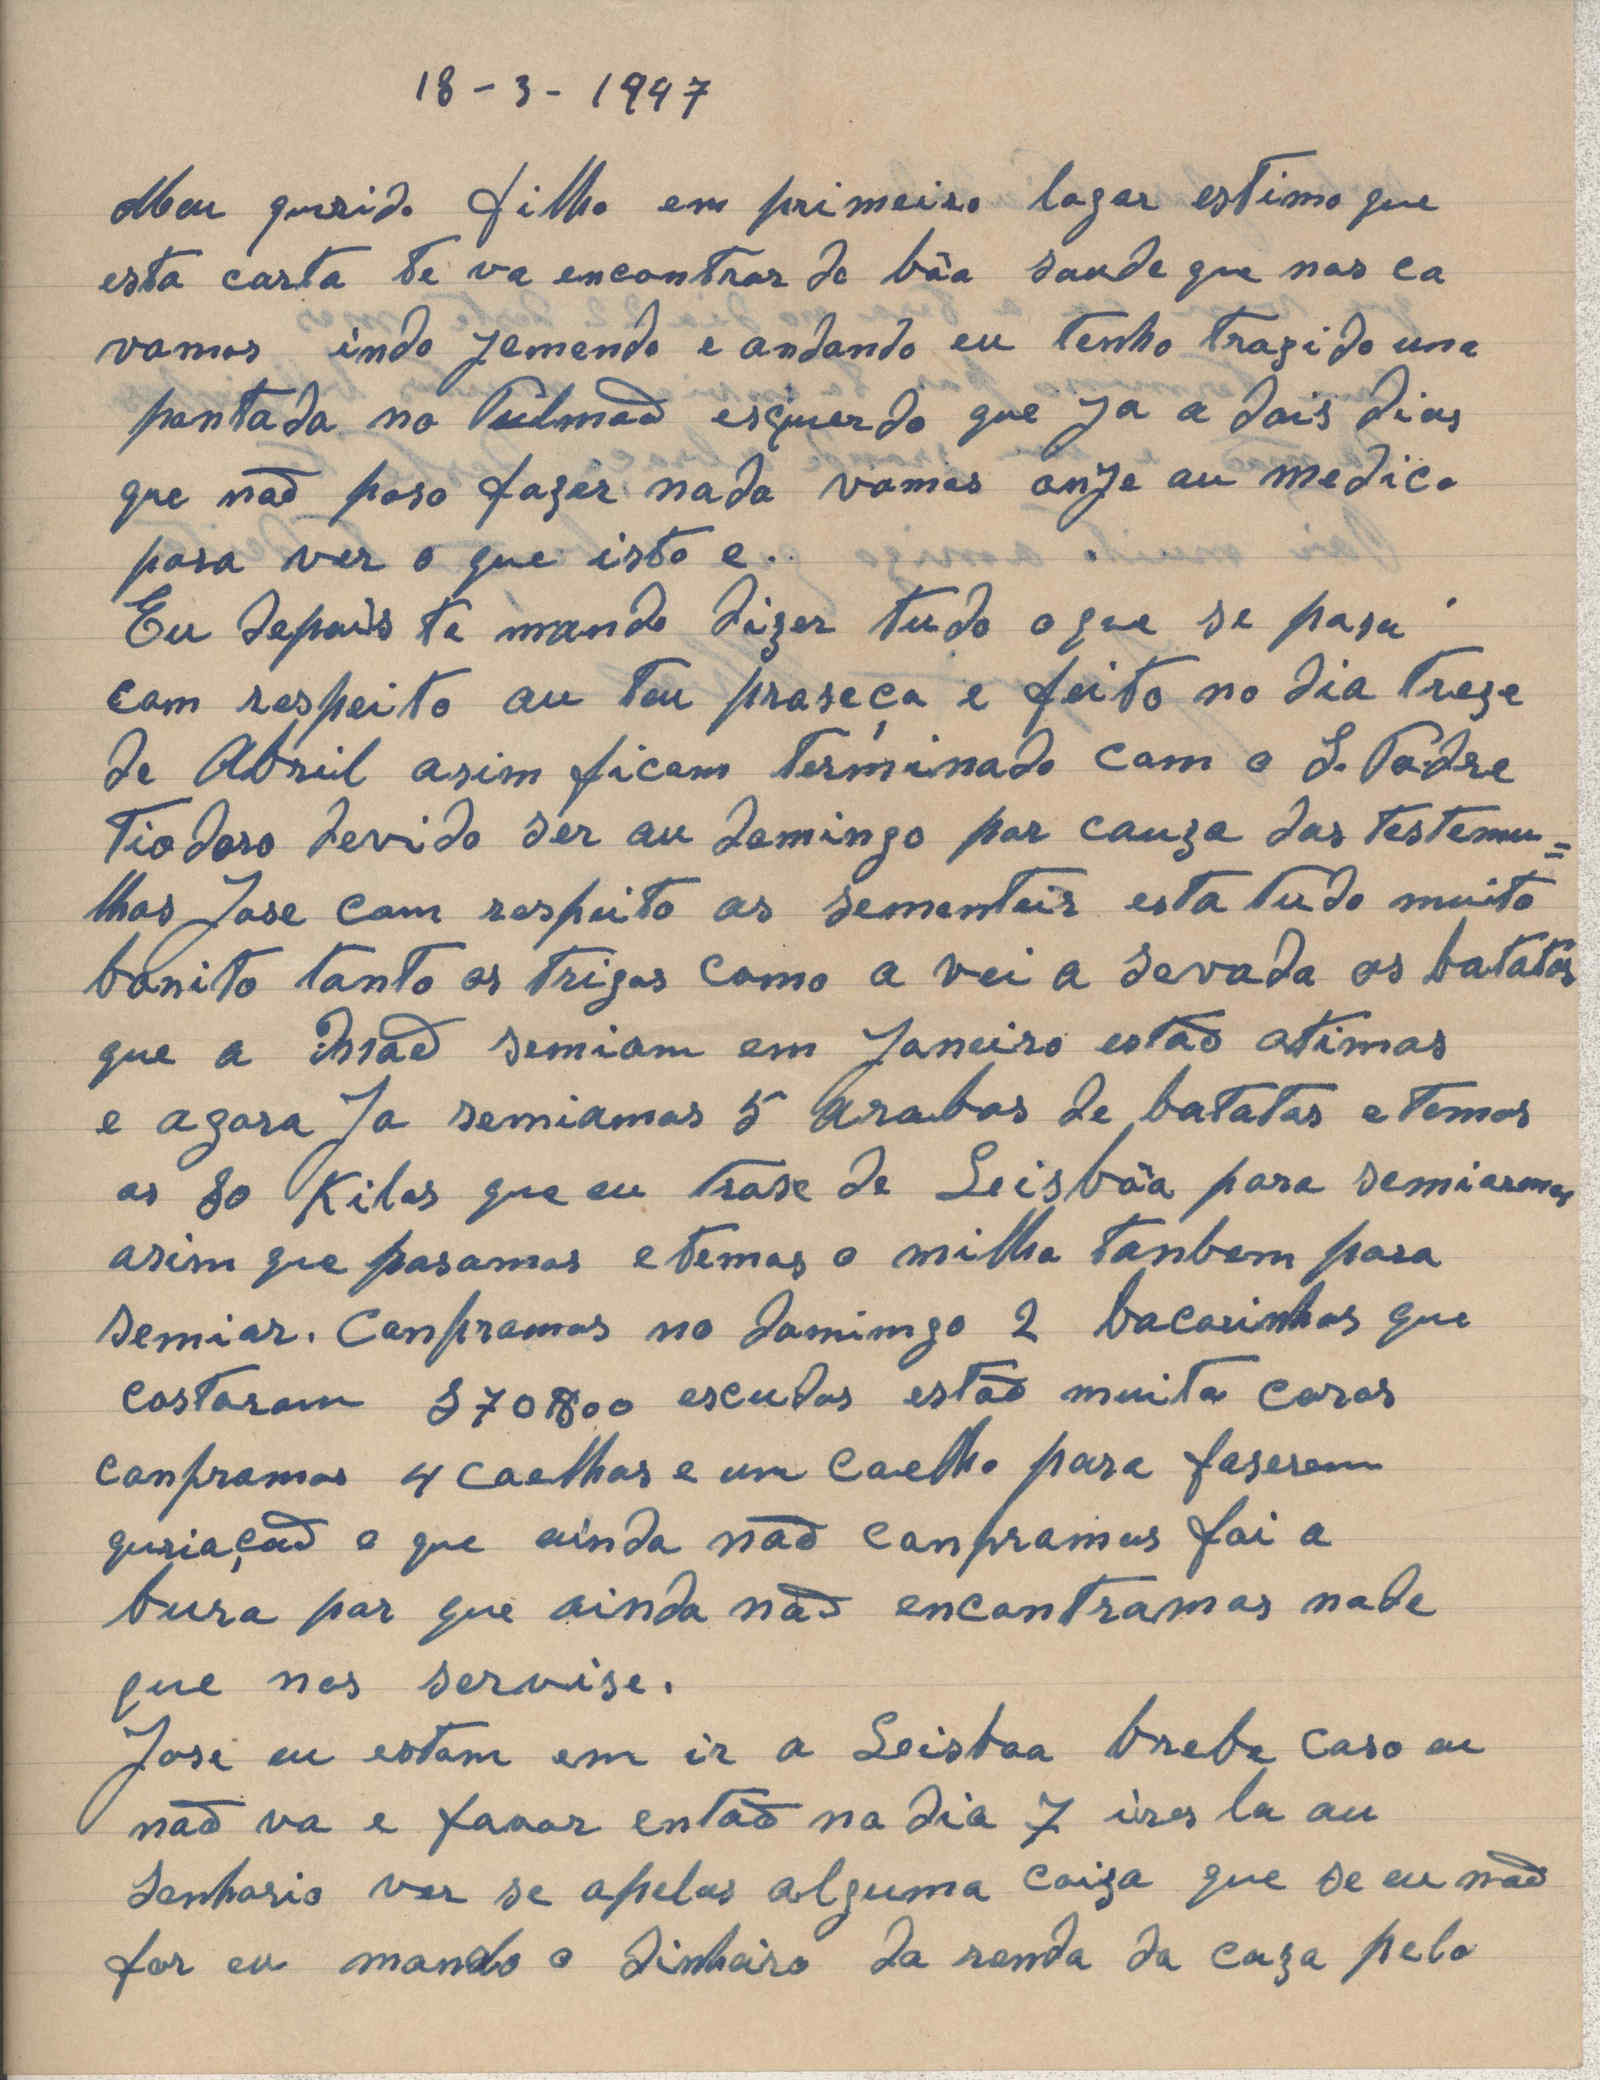 18-3-1947
Meu qurido filho em primeiro logar estimo que
esta carta te va encontrar de bôa saude que nos ca
vamos indo jemendo e andando eu tenho trazido uma
pontada no Pulmaõ esquerdo que Ja a dois dias
que naõ poso fazer nada vamos onje au medico
para ver o que isto e..
Eu depois te mando dizer tudo o que se pasa
com respeito au teu praseça e feito no dia treze
de Abril asim ficam terminado com o S. Padre
Tiodoro devido ser au domingo por cauza das testemu=
lhas Jose com respeito as sementeir esta tudo muito
bonito tanto os trigos como a vei a sevada as batatas
que a Maõ semiam em Janeiro estaõ otimas
e agora Ja semiamos 5 arabas de batatas e temos
as 80 Kilos que eu trose de Leisbôa para semiarmos
asim que posamos e temos o milho tanbem para
semiar. Conpramos no domimgo 2 bacorinhos que
costaram 370$00 escudos estaõ muita caros
conpramos 4 coelhas e um coelho para faserem
quriaçaõ o que ainda naõ conpramos foi a
bura por que ainda naõ encontramos nade
que nos servise.
Jose eu estom em ir a Leisboa brebe caso eu
naõ va e favor entaõ no dia 7 ires la au
Senhorio ver se apelas alguma coiza que se eu naõ
for eu mando o dinheiro da renda da caza pelo